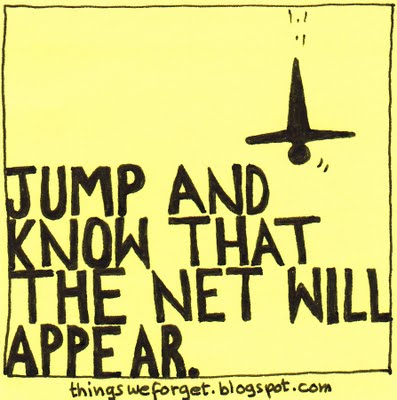 JUMP AND
KNOW THAT
THE NET WILL
APPEAR.
thingsweforget.blogspot.com